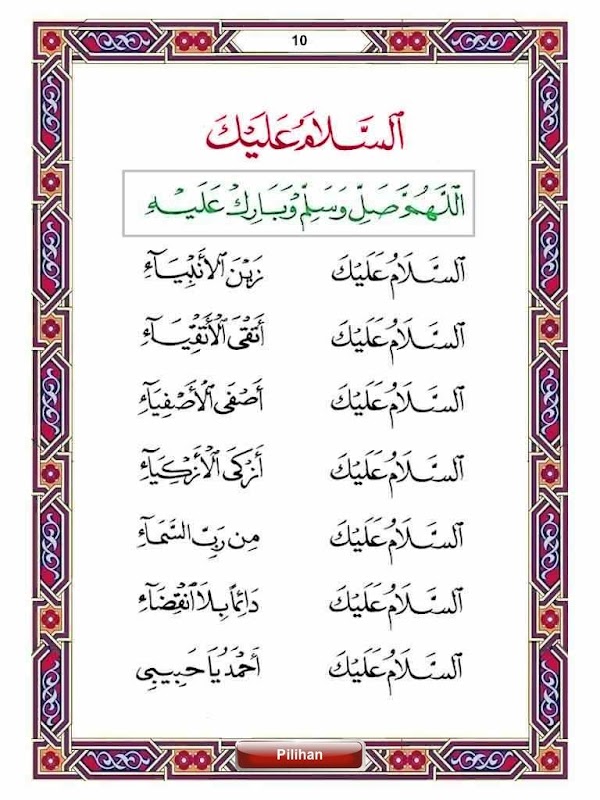 10
اَلسَّلَامُ عَلَيْكَ
اَللّٰهُمَّ صَلِّ وَسَلِّمْ وَبَارِكْ عَلَيْهِ
اَلسَّلَامُ عَلَيْكَ زَيْنَ الْأَنْبِيَاءِ
اَلسَّلَامُ عَلَيْكَ أَتْقَى الْأَتْقِيَاءِ
اَلسَّلَامُ عَلَيْكَ أَصْفَى الْأَصْفِيَاءِ
اَلسَّلَامُ عَلَيْكَ أَزْكَى الْأَزْكِيَاءِ
اَلسَّلَامُ عَلَيْكَ مِن رَبِّ السَّمَاءِ
اَلسَّلَامُ عَلَيْكَ دَائِمًا بِلَا انْقِضَاءِ
اَلسَّلَامُ عَلَيْكَ أَحْمَدُ يَا حَبِيبِي
Pilihan